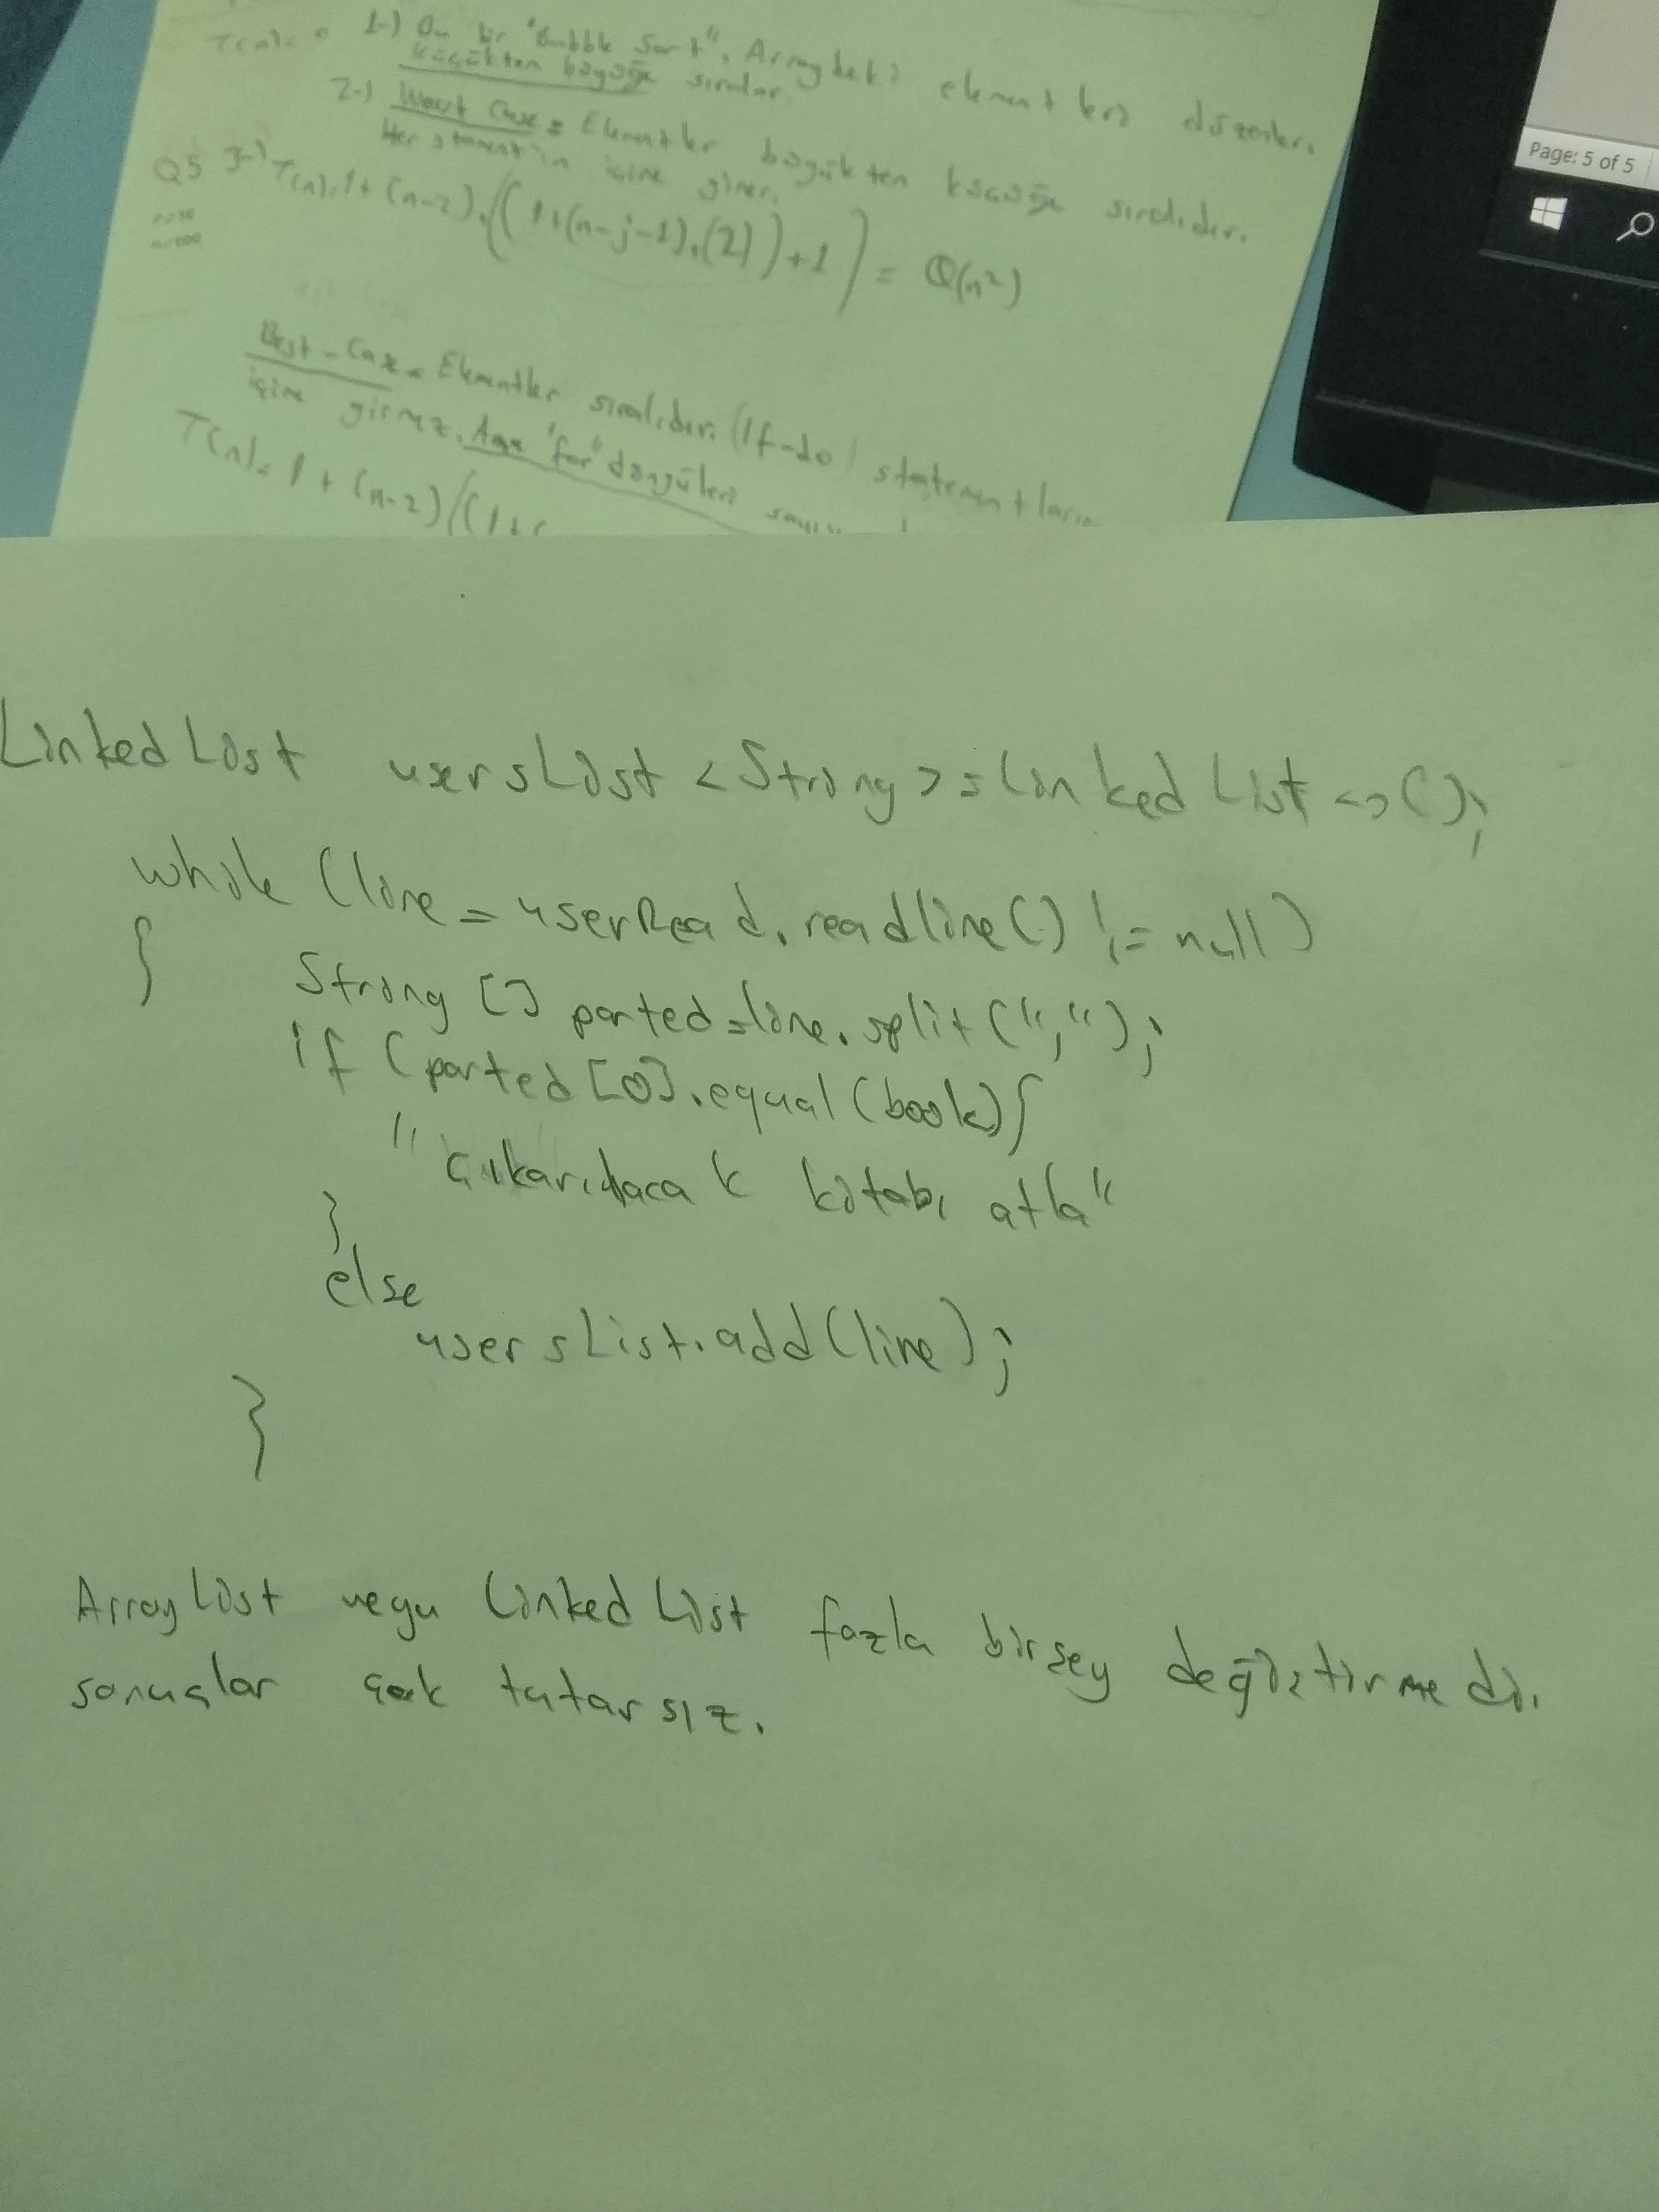 T(n)=
1-) Bu bir "Bubble Sort". Arraydeki elementleri düzenler.
küçükten büyüğe sıralar.
2-) Worst Case = Elementler büyükten küçüğe sıralıdır.
Her statement'ın içine girer.
Q5 3-) T(n)=1+(n-2).((1+(n-j-1).(2))+1) = Θ(n²)
n=10
n=100
Best-Case = Elementler sıralıdır. (If-do) statementların
içine girmez. Ama "for" döngüleri
T(n)= 1 + (n-2)((1+(
Page: 5 of 5
Linked List usersList <String> = Linked List <>();
while (line = userRead.readline() != null)
{
String [] parted = line.split(",");
if (parted [0].equal (book) {
"çıkarılacak kitabı atla"
}
else
usersList.add(line);
}
ArrayList veya Linked List fazla birşey değiştirmedi.
sonuçlar çok tutarsız.